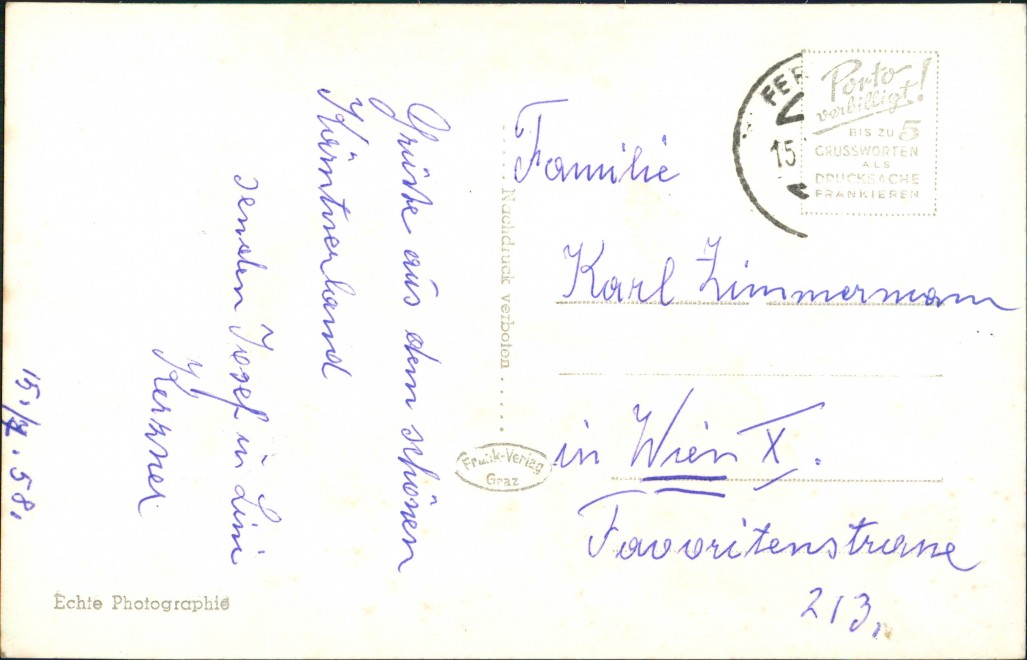 Grüße aus dem schönen
Kärntnerland
senden Josef u. Lini
Kerzner
15./7.58.
Echte Photographie
Nachdruck verboten
Frank-Verlag
Graz
FER
15
Porto
verbilligt!
BIS ZU 5
GRUSSWORTEN
ALS
DRUCKSACHE
FRANKIEREN
Familie
Karl Zimmermann
in Wien X.
Favoritenstrasse
213.